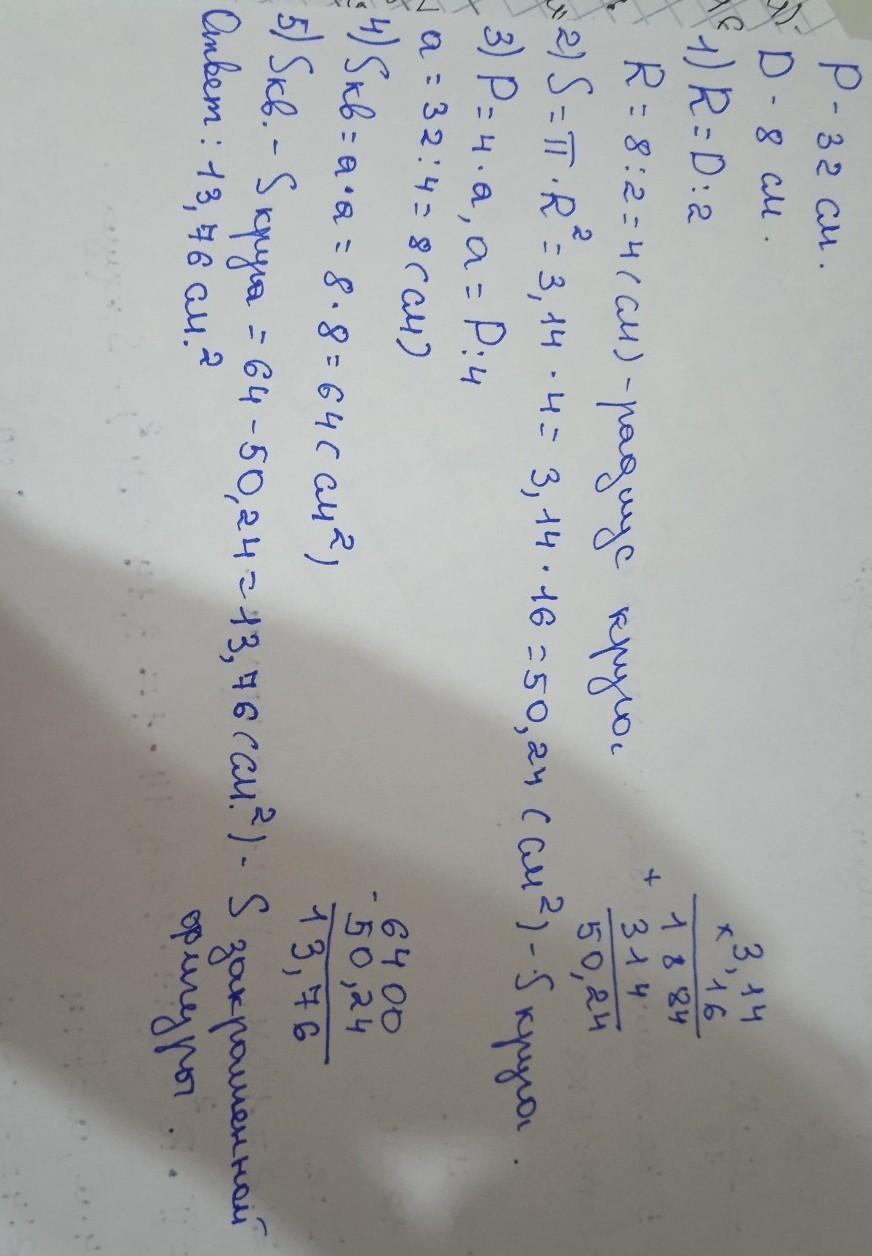 P - 32 см.
D - 8 см.
1) R = D : 2
R = 8 : 2 = 4 (см) - радиус круга.
2) S = π · R² = 3,14 · 4 = 3,14 · 16 = 50,24 (см²) - S круга.
3) P = 4 · a, a = P : 4
a = 32 : 4 = 8 (см)
4) Sкв = a · a = 8 · 8 = 64 (см²)
5) Sкв. - Sкруга = 64 - 50,24 = 13,76 (см.²) - S закрашенной
фигуры.
Ответ: 13,76 см.²
3,14
× 16
1884
+ 314
50,24
6400
- 50,24
13,76